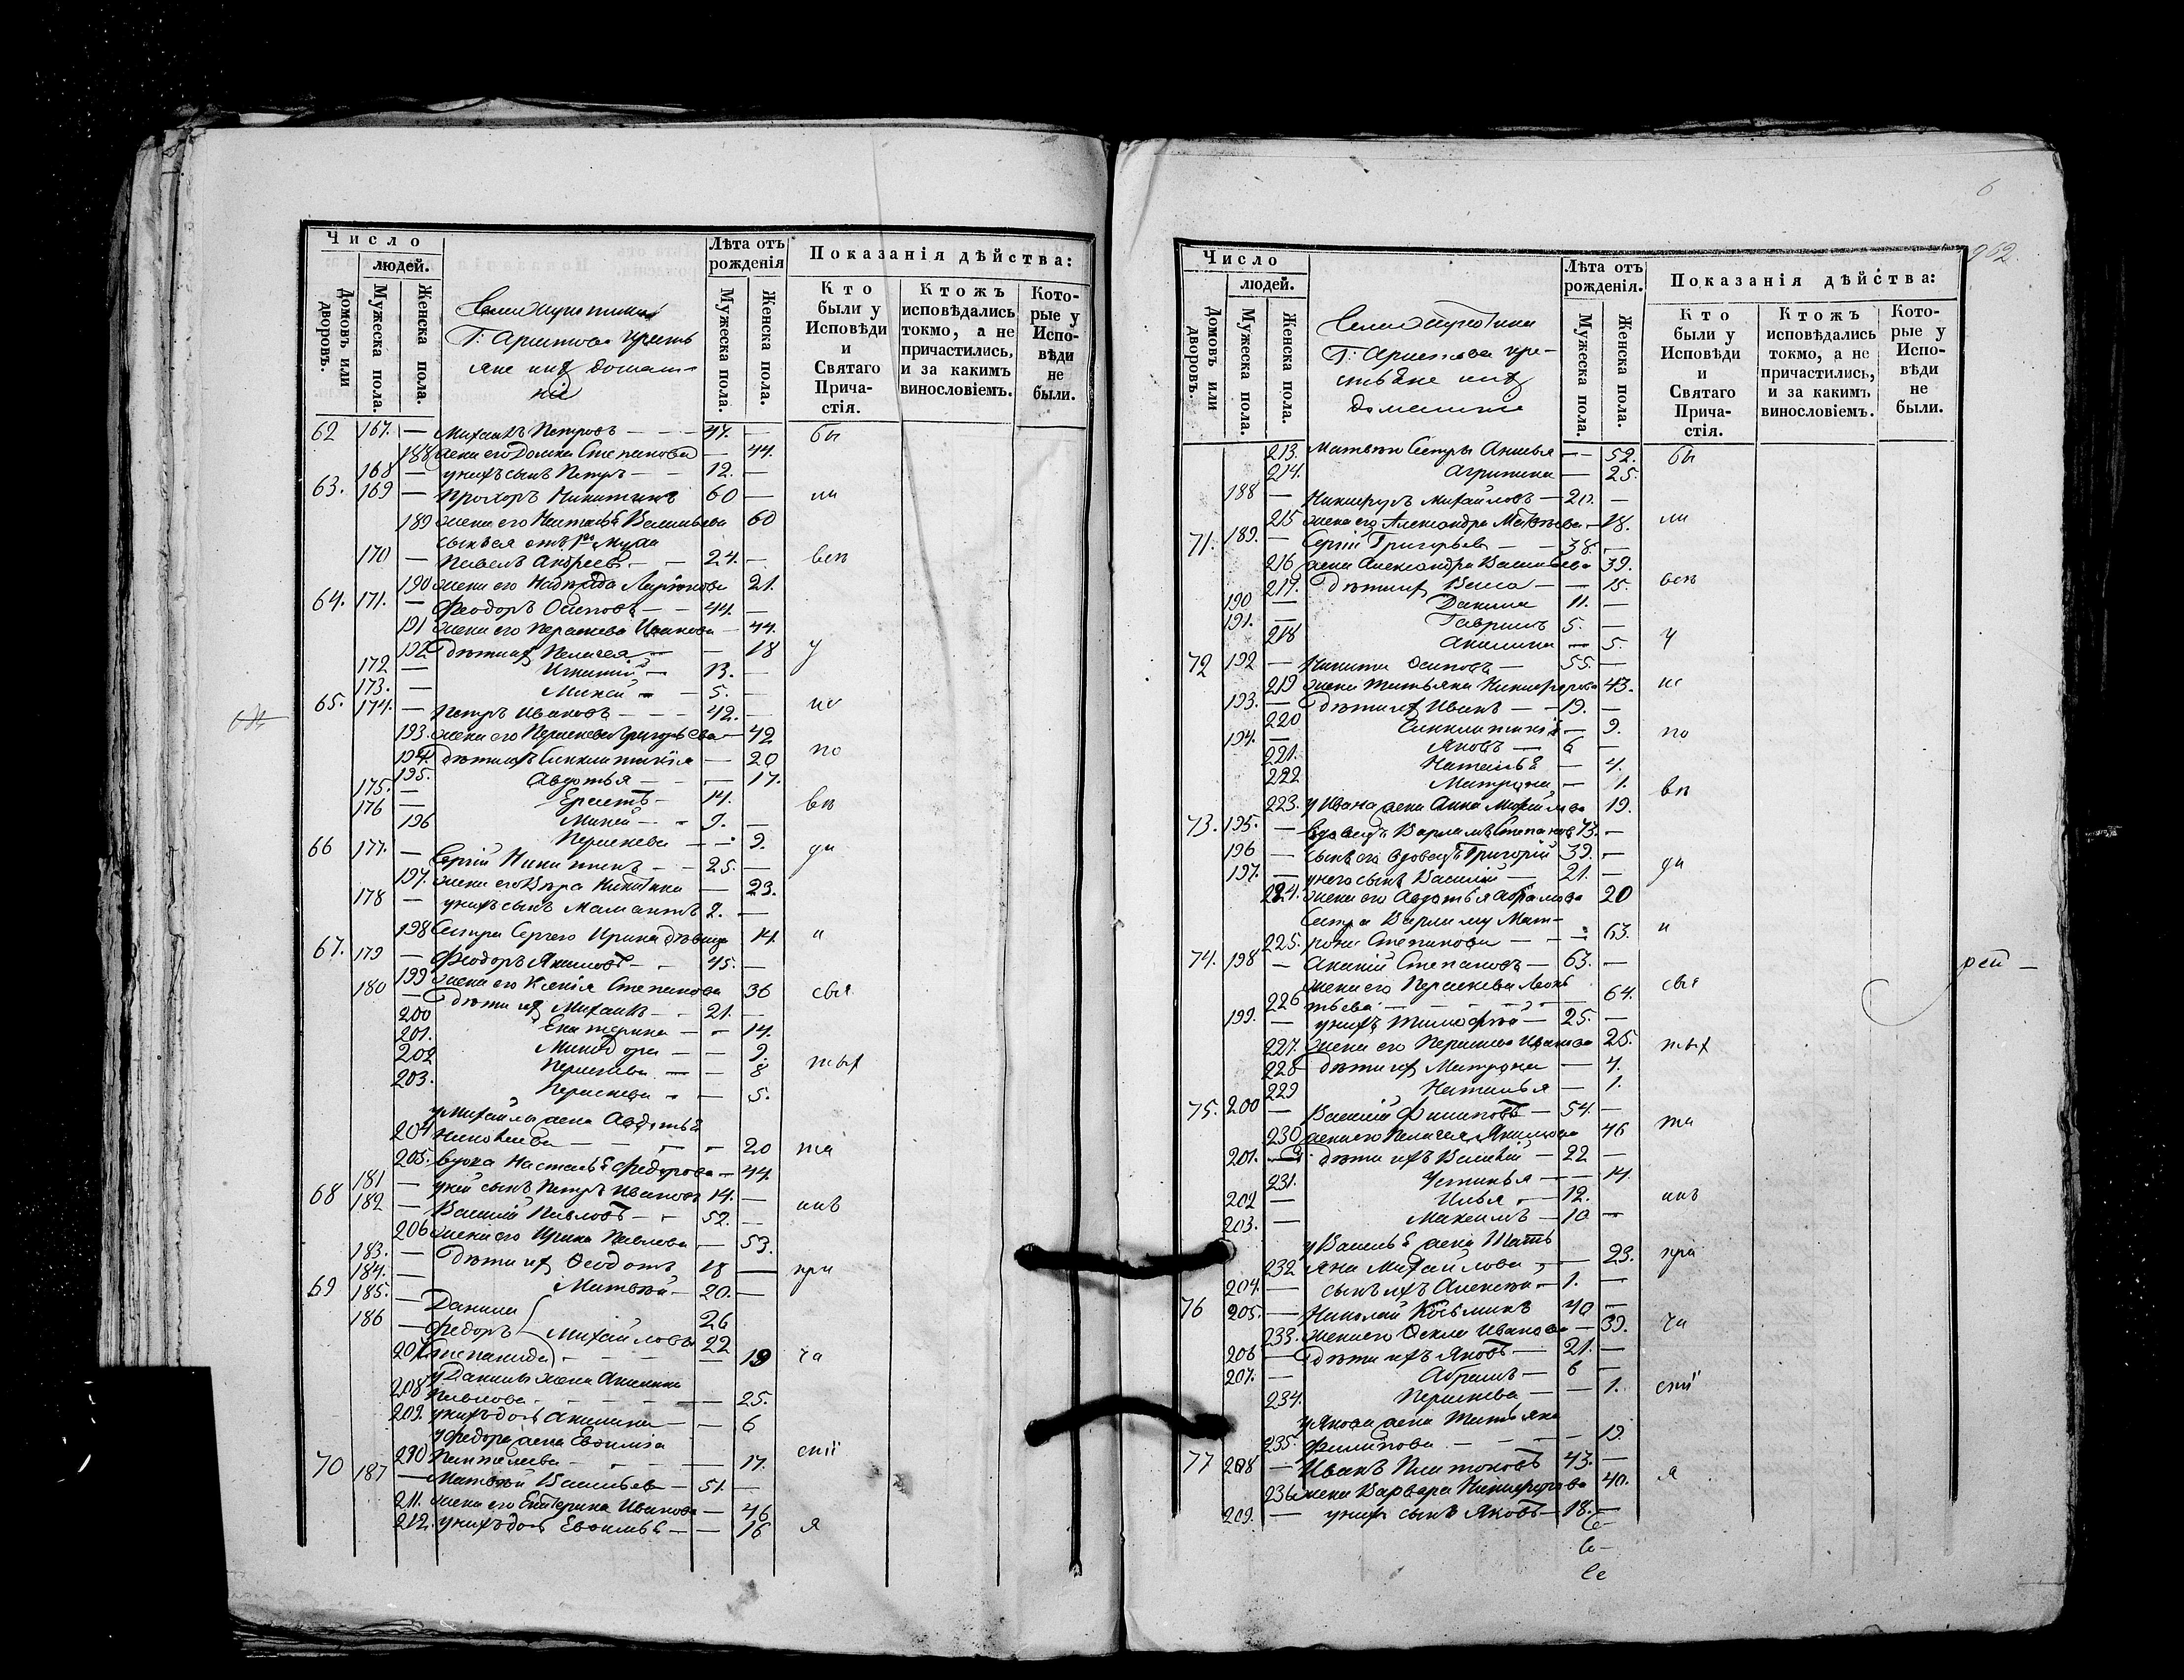 Число
людей.
Домовъ или дворовъ.
Мужеска пола.
Женска пола.
Лѣта отъ рожденія
Мужеска пола.
Женска пола.
Показанія дѣйства:
Кто были у Исповѣди и Святаго Прича-стія.
Ктожъ исповѣдались токмо, а не причастились, и за какимъ винословіемъ.
Кото-рые у Испо-вѣди не были.
62 167. — Михаилъ Петровъ — 47. — бы
188 жена его Степанова — 44.
168 — у нихъ сынъ Петръ — 12. —
63. 169 — Прохоръ Никитинъ 60 — ли
189 жена его Наталья Васильева 60
170 — Павелъ Андреевъ — 24. — всѣ
190 жена его 21.
64. 171. — Феодоръ Осиповъ — 44. —
191 жена его Парасковья Иванова — 44.
192 дѣти ихъ Пелагея — 18 у
172 — Игнатій — 13. —
173. — Михей — 5. —
65. 174. — Петръ Ивановъ — 42. — ис
193. жена его Григорьева — 42
194. дѣти ихъ Синклитикія — 20 по
195. Авдотья — 17.
175. — Ерастъ — 14. вѣ
176 — Михей — 9. —
196 Параскева — 9.
66 177. — Сергій Никитинъ — 25. — ди
197. жена его Вѣра Никитина — 23.
178 — у нихъ сынъ Мамантъ 2. —
198 Сестра Сергею Ирина дѣвица 14. и
67. 179 — Феодоръ Якимовъ — 45. —
199 жена его Ксенія Степанова 36 свя
180 — дѣти ихъ Михаилъ — 21. —
200 Екатерина — 14.
201. Минодора — 9.
202 Параскева — 8 тых
203. Параскева — 5.
у Михайла жена Авдотья
204 Николаева — 20 та
205. вдова Настасья Федорова — 44.
181 — у ней сынъ Петръ Ивановъ 14. —
68 182 — Василій Павловъ — 52. — инъ
206 жена его Ирина Павлова — 53.
183. — дѣти ихъ Феодотъ 18 — при
184. — Матвѣй — 20. —
69 185. — Данила 26
186 — Федоръ Михайловы 22
207 Степанида — 19 ча
у Данилы жена Акилина
208 Павлова — 25.
209. у нихъ дочь Акилина — 6
у Федора жена Евфимія
210 Пантелеева — 17. стій
70 187 — Матвѣй Васильевъ — 51. —
211. жена его Екатерина Иванова — 46
212. у нихъ дочь — 16 я
6
962.
Число
людей.
Домовъ или дворовъ.
Мужеска пола.
Женска пола.
Лѣта отъ рожденія.
Мужеска пола.
Женска пола.
Показанія дѣйства:
Кто были у Исповѣди и Святаго Прича-стія.
Ктожъ исповѣдались токмо, а не причастились, и за какимъ винословіемъ.
Кото-рые у Испо-вѣди не были.
213. Матвѣю Сестры — 52. бы
214. Агрипина — 25.
188 — Никифоръ Михайловъ — 20. —
215 жена его Александра Матвѣева — 18. ли
71. 189. — Сергій Григорьевъ — 38. —
216 жена Александра Васильева 39.
217. дѣти ихъ Васса — 15. всѣ
190 — Данила 11. —
191. — Гаврилъ 5. —
218 Акилина — 5. у
72 192 — Никита Осиповъ — 55. —
219 жена Татьяна Никифорова 43. ис
193. — дѣти ихъ Иванъ — 19. —
220 Синклитикія — 9. по
194. — Яковъ — 6 —
221. Наталья — 4.
222 Матрона — 1. вѣ
223. у Ивана жена Анна Михайлова 19.
73. 195. — вдовецъ Варламъ Степановъ 73. —
196 — Сынъ его вдовецъ Григорій 39. — ди
197. — у него сынъ Василій — 21. —
224. жена его Авдотья Абрамова 20
Сестра Варламу Мат-
225. рона Степанова — 63. и
74. 198 — Ананій Степановъ — 63. —
226 жена его Параскева Леонтьева — 64. свя
199. — у нихъ Тимофѣй — 25. —
227. жена его Иванова 25. тых
228 дѣти ихъ Матрона — 4.
229 Наталья — 1.
75. 200 — Василій Филиповъ — 54. — та
230 жена его Пелагея Якимова 46
201. дѣти ихъ Василій — 22 —
231. Устинья — 14.
202 — Илья — 12. инъ
203. — Максимъ — 10 —
у Василья жена Тать
232 яна Михайлова — 23. при
204. — сынъ ихъ Алексѣй — 1. —
76 205. — Николай Козьминъ 40 —
233. жена его Фекла Иванова — 39. ча
206 — дѣти ихъ Яковъ — 21. —
207. — Абрамъ — 6 —
234. Параскева — 1. стій
у Якова жена Татьяна
235. Филипова — 19.
77 208 — Иванъ Платоновъ 43. —
236 жена Варвара Никифорова 40. я
209. — у нихъ сынъ Яковъ — 18. —
рей —